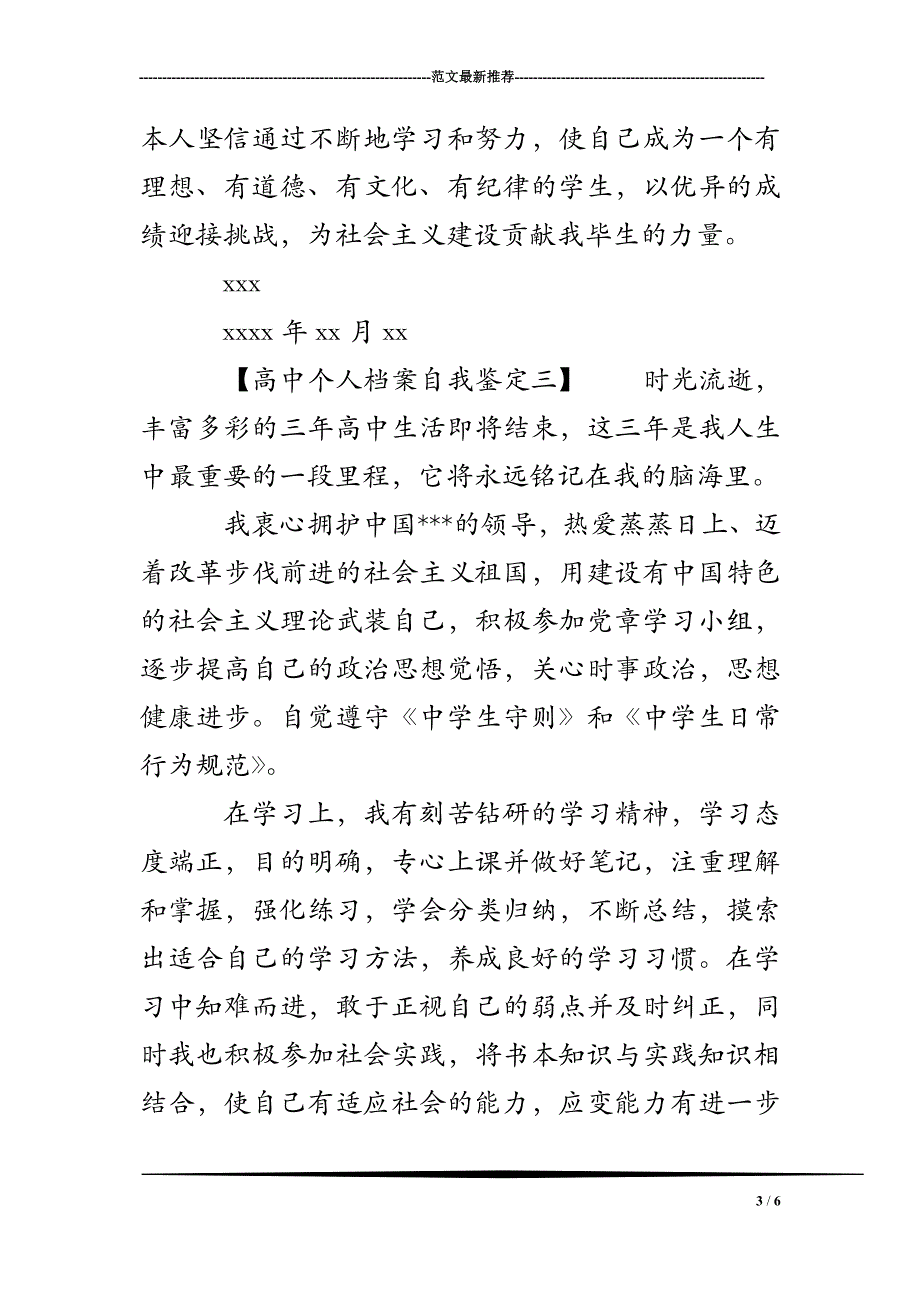 ---------------------------------------------------------------范文最新推荐------------------------------------------------------
本人坚信通过不断地学习和努力，使自己成为一个有
理想、有道德、有文化、有纪律的学生，以优异的成
绩迎接挑战，为社会主义建设贡献我毕生的力量。
xxx
xxxx 年 xx 月 xx
【高中个人档案自我鉴定三】 时光流逝，
丰富多彩的三年高中生活即将结束，这三年是我人生
中最重要的一段里程，它将永远铭记在我的脑海里。
我衷心拥护中国***的领导，热爱蒸蒸日上、迈
着改革步伐前进的社会主义祖国，用建设有中国特色
的社会主义理论武装自己，积极参加党章学习小组，
逐步提高自己的政治思想觉悟，关心时事政治，思想
健康进步。自觉遵守《中学生守则》和《中学生日常
行为规范》。
在学习上，我有刻苦钻研的学习精神，学习态
度端正，目的明确，专心上课并做好笔记，注重理解
和掌握，强化练习，学会分类归纳，不断总结，摸索
出适合自己的学习方法，养成良好的学习习惯。在学
习中知难而进，敢于正视自己的弱点并及时纠正，同
时我也积极参加社会实践，将书本知识与实践知识相
结合，使自己有适应社会的能力，应变能力有进一步
3 / 6